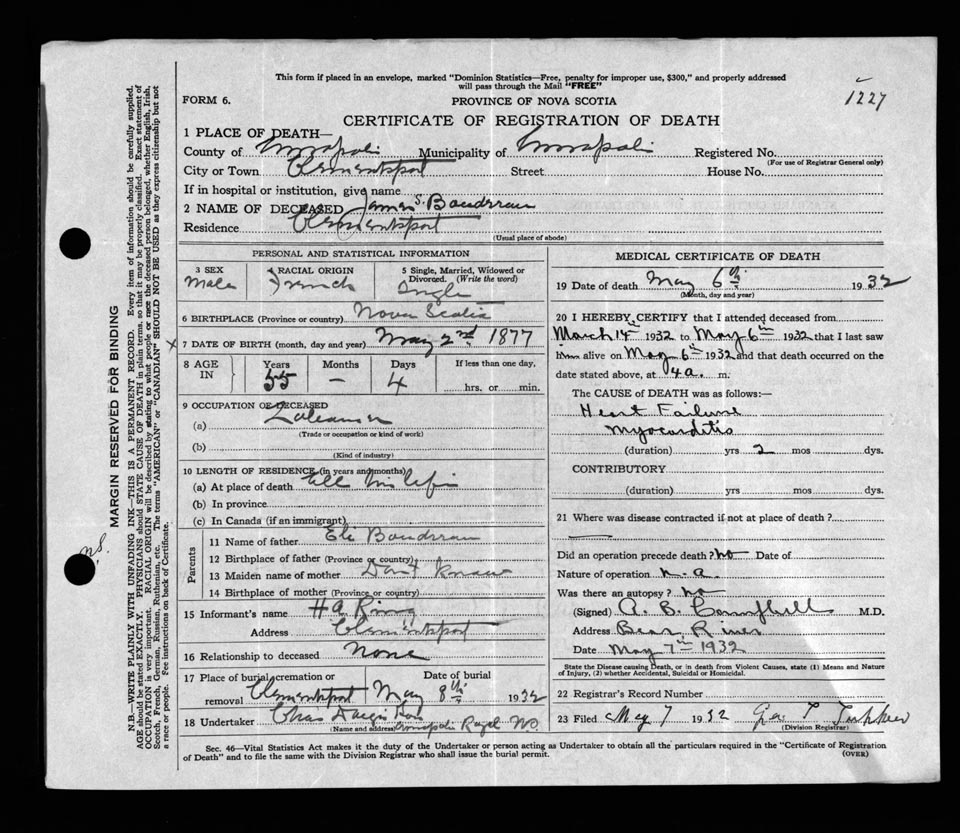 This form if placed in an envelope, marked "Dominion Statistics—Free, penalty for improper use, $300," and properly addressed
will pass through the Mail "FREE"
1227
FORM 6.
PROVINCE OF NOVA SCOTIA
CERTIFICATE OF REGISTRATION OF DEATH
1 PLACE OF DEATH—
County of Annapolis Municipality of Annapolis Registered No.
(For use of Registrar General only)
City or Town Clementsport Street House No.
If in hospital or institution, give name
2 NAME OF DECEASED James S. Boudreau
Residence Clementsport
(Usual place of abode)
PERSONAL AND STATISTICAL INFORMATION
3 SEX
Male
4 RACIAL ORIGIN
French
5 Single, Married, Widowed or
Divorced. (Write the word)
Single
6 BIRTHPLACE (Province or country) Nova Scotia
x 7 DATE OF BIRTH (month, day and year) May 2nd 1877
8 AGE
IN
Years
55
Months
—
Days
4
If less than one day,
hrs. or min.
9 OCCUPATION OF DECEASED
(a)
(Trade or occupation or kind of work)
(b)
(Kind of industry)
10 LENGTH OF RESIDENCE (in years and months)
(a) At place of death All his life
(b) In province
(c) In Canada (if an immigrant)
Parents
11 Name of father Eli Boudreau
12 Birthplace of father (Province or country)
13 Maiden name of mother Dont know
14 Birthplace of mother (Province or country)
15 Informant's name H A Ring
Address Clementsport
16 Relationship to deceased None
17 Place of burial, cremation or
removal Clementsport
Date of burial
May 8th 1932
18 Undertaker Chas
(Name and address) Annapolis Royal N.S.
MEDICAL CERTIFICATE OF DEATH
19 Date of death May 6th 1932
(Month, day and year)
20 I HEREBY CERTIFY that I attended deceased from
March 14th 1932 to May 6th 1932 that I last saw
him alive on May 6th 1932 and that death occurred on the
date stated above, at 4 a. m.
The CAUSE of DEATH was as follows:—
Heart Failure
Myocarditis
(duration) yrs 2 mos dys.
CONTRIBUTORY
(duration) yrs mos dys.
21 Where was disease contracted if not at place of death?
Did an operation precede death? no Date of
Nature of operation n.a.
Was there an autopsy? no
(Signed) A. B. Campbell M.D.
Address Bear River
Date May 7th 1932
State the Disease causing Death, or in death from Violent Causes, state (1) Means and Nature
of Injury, (2) whether Accidental, Suicidal or Homicidal.
22 Registrar's Record Number
23 Filed May 7 1932 Geo T Tupper
(Division Registrar)
Sec. 46—Vital Statistics Act makes it the duty of the Undertaker or person acting as Undertaker to obtain all the particulars required in the "Certificate of Registration
of Death" and to file the same with the Division Registrar who shall issue the burial permit.
(OVER)
MARGIN RESERVED FOR BINDING
N.B.—WRITE PLAINLY WITH UNFADING INK—THIS IS A PERMANENT RECORD. Every item of information should be carefully supplied.
AGE should be stated EXACTLY. PHYSICIANS should STATE CAUSE OF DEATH in plain terms, so that it may be properly classified. Exact statement of
OCCUPATION is very important. RACIAL ORIGIN will be described by stating to what people or race the deceased person belonged, whether English, Irish,
Scotch, French, German, Russian, Ruthenian, etc. The terms "AMERICAN" or "CANADIAN" SHOULD NOT BE USED as they express citizenship but not
a race or people. See instructions on back of Certificate.
ns.